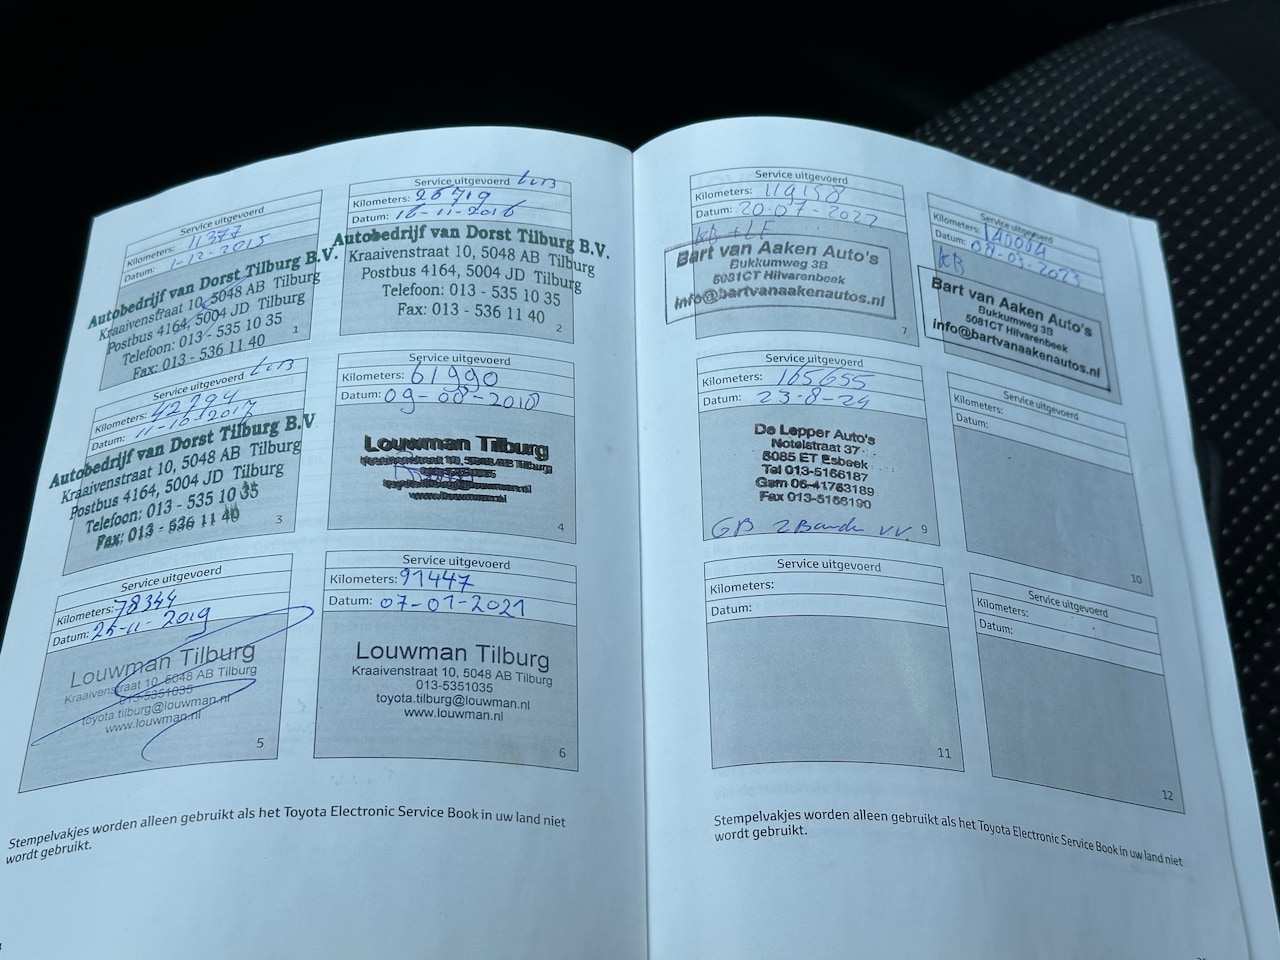 Service uitgevoerd
Kilometers: 11377
Datum: 1-12-2015
Autobedrijf van Dorst Tilburg B.V.
Kraaivenstraat 10, 5048 AB Tilburg
Postbus 4164, 5004 JD Tilburg
Telefoon: 013 - 535 10 35
Fax: 013 - 536 11 40
1
Service uitgevoerd
Kilometers: 26719
Datum: 16-11-2016
Autobedrijf van Dorst Tilburg B.V.
Kraaivenstraat 10, 5048 AB Tilburg
Postbus 4164, 5004 JD Tilburg
Telefoon: 013 - 535 10 35
Fax: 013 - 536 11 40
2
Service uitgevoerd
Kilometers: 42794
Datum: 11-10-2017
Autobedrijf van Dorst Tilburg B.V
Kraaivenstraat 10, 5048 AB Tilburg
Postbus 4164, 5004 JD Tilburg
Telefoon: 013 - 535 10 35
Fax: 013 - 536 11 40
3
Service uitgevoerd
Kilometers: 61990
Datum: 09-08-2018
Louwman Tilburg
www.louwman.nl
4
Service uitgevoerd
Kilometers: 78344
Datum: 25-11-2019
Louwman Tilburg
Kraaivenstraat 10, 5048 AB Tilburg
013-5351035
toyota.tilburg@louwman.nl
www.louwman.nl
5
Service uitgevoerd
Kilometers: 91447
Datum: 07-01-2021
Louwman Tilburg
Kraaivenstraat 10, 5048 AB Tilburg
013-5351035
toyota.tilburg@louwman.nl
www.louwman.nl
6
Stempelvakjes worden alleen gebruikt als het Toyota Electronic Service Book in uw land niet
wordt gebruikt.
Service uitgevoerd
Kilometers: 119158
Datum: 20-07-2022
KB + LF
Bart van Aaken Auto's
Bukkumweg 3B
5081CT Hilvarenbeek
info@bartvanaakenautos.nl
7
Service uitgevoerd
Kilometers: 140004
Datum: 08-03-2023
KB
Bart van Aaken Auto's
Bukkumweg 3B
5081CT Hilvarenbeek
info@bartvanaakenautos.nl
Service uitgevoerd
Kilometers: 165655
Datum: 23-8-24
De Lepper Auto's
Notelstraat 37
5085 ET Esbeek
Tel 013-5166187
Gsm 06-41763189
Fax 013-5166190
GB 2 Banden VV
9
Service uitgevoerd
Kilometers:
Datum:
10
Service uitgevoerd
Kilometers:
Datum:
11
Service uitgevoerd
Kilometers:
Datum:
12
Stempelvakjes worden alleen gebruikt als het Toyota Electronic Service Book in uw land niet
wordt gebruikt.